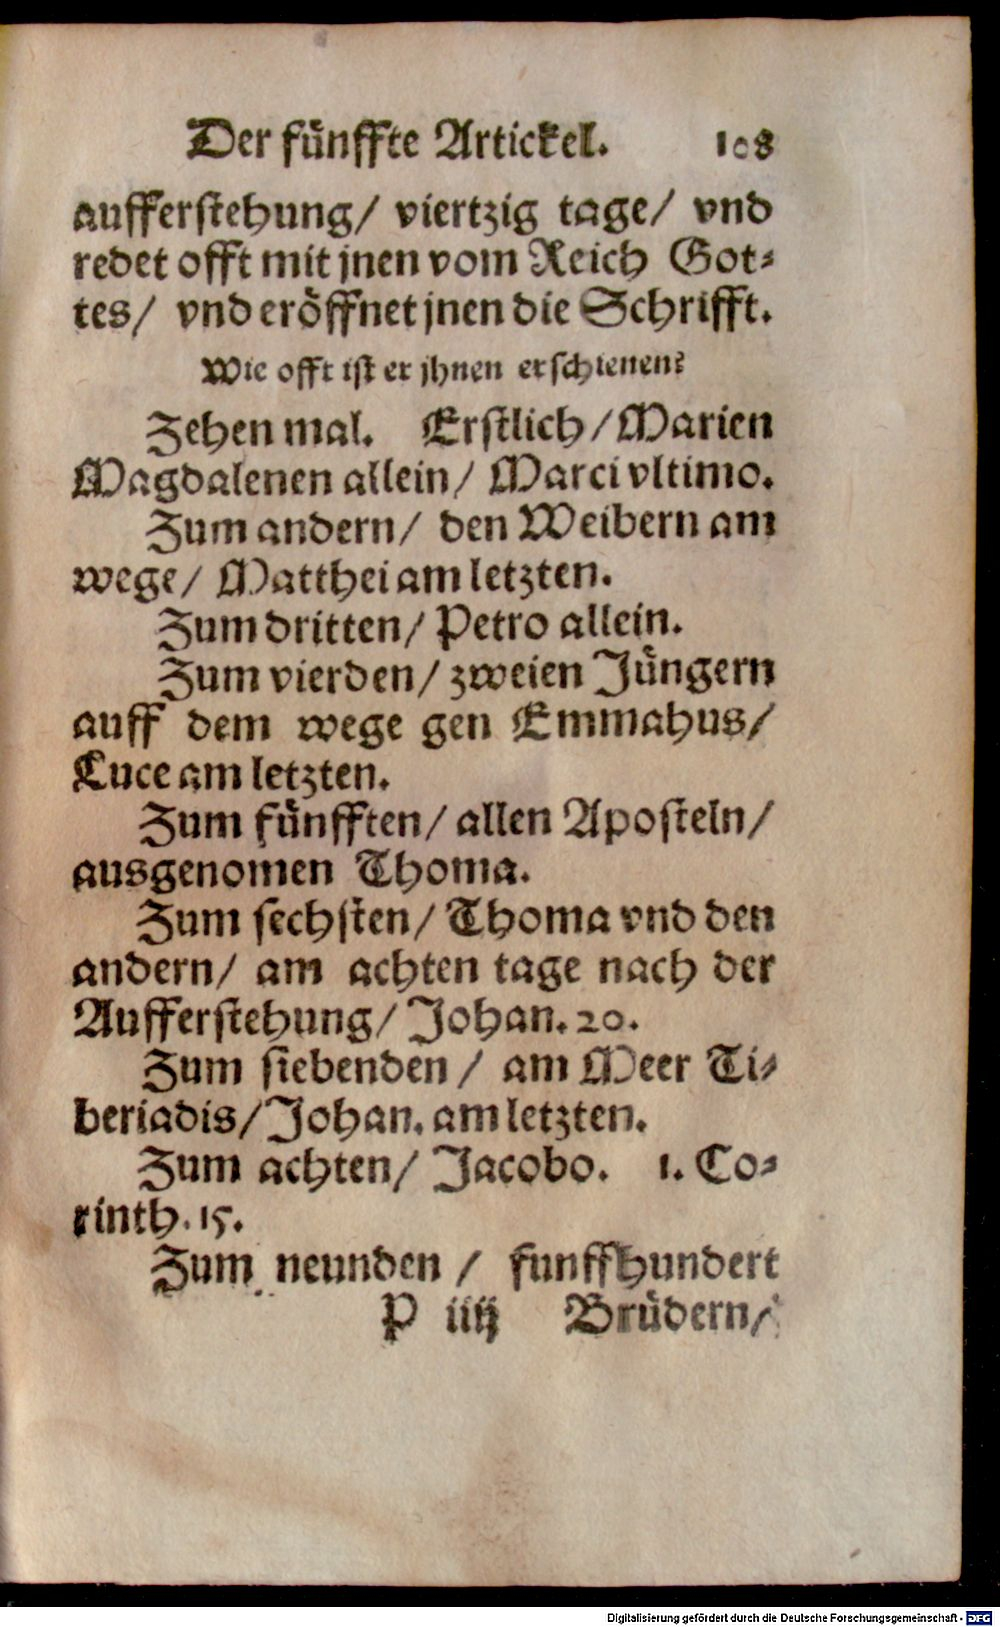 Der fuͤnffte Artickel. 108
aufferstehung/ viertzig tage/ vnd
redet offt mit jnen vom Reich Got-
tes/ vnd eroͤffnet jnen die Schrifft.
Wie offt ist er jhnen erschienen?
Zehen mal. Erstlich/ Marien
Magdalenen allein/ Marci vltimo.
Zum andern/ den Weibern am
wege/ Matthei am letzten.
Zum dritten/ Petro allein.
Zum vierden/ zweien Juͤngern
auff dem wege gen Emmahus/
Luce am letzten.
Zum fuͤnfften/ allen Aposteln/
ausgenomen Thoma.
Zum sechsten/ Thoma vnd den
andern/ am achten tage nach der
Aufferstehung/ Johan. 20.
Zum siebenden/ am Meer Ti-
beriadis/ Johan. am letzten.
Zum achten/ Jacobo. 1. Co-
rinth. 15.
Zum neunden/ funffhundert
P iiij Bruͤdern/
Digitalisierung gefördert durch die Deutsche Forschungsgemeinschaft - DFG